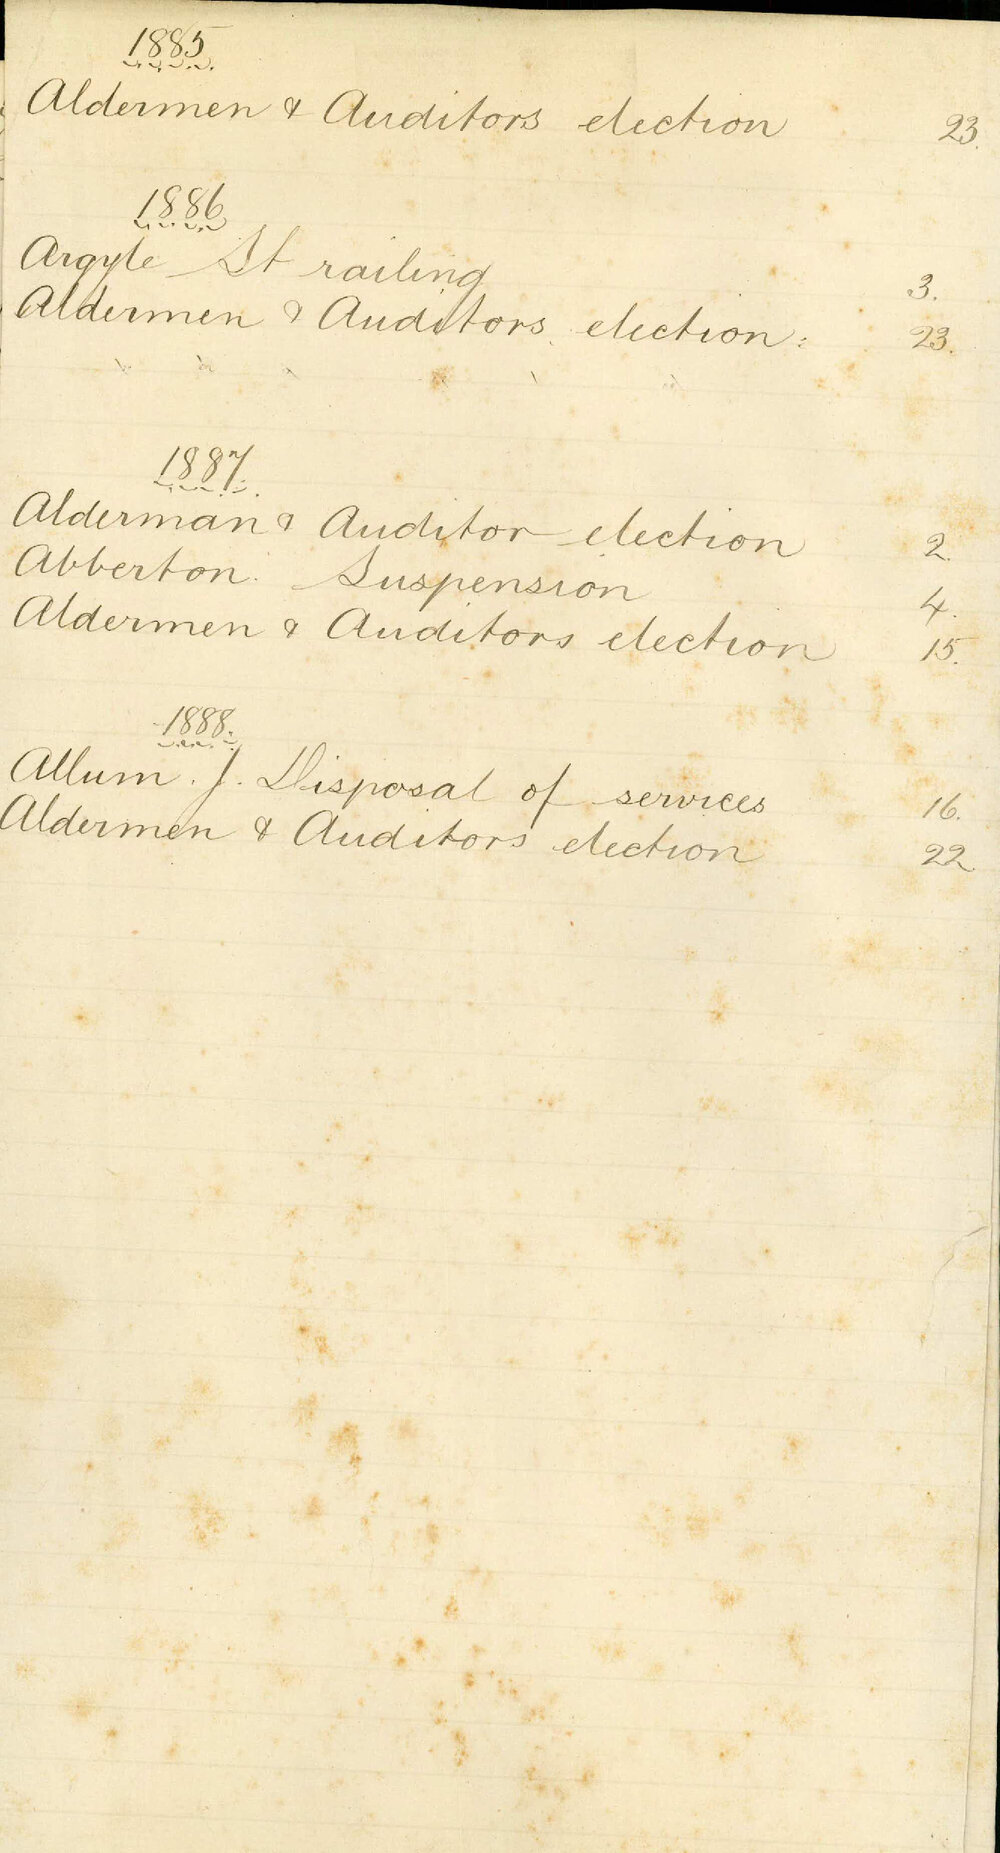 1885
Aldermen & Auditors election 23.
1886
Argyle St railing 3.
Aldermen & Auditors election: 23.
1887.
Alderman & Auditor election 2.
Abberton. Suspension 4.
Aldermen & Auditors election 15.
1888.
Allum. J. Disposal of services 16.
Aldermen & Auditors election 22.